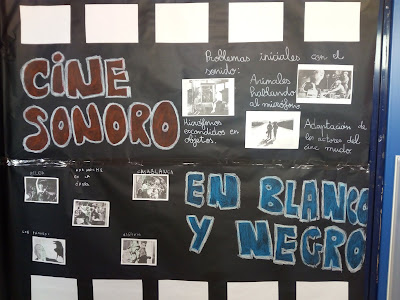 CINE
SONORO
Problemas iniciales con el
sonido:
Animales
hablando
al micrófono
Micrófonos
escondidos en
objetos.
Adaptación de
los actores del
cine mudo.
EN BLANCO
Y NEGRO
CASABLANCA